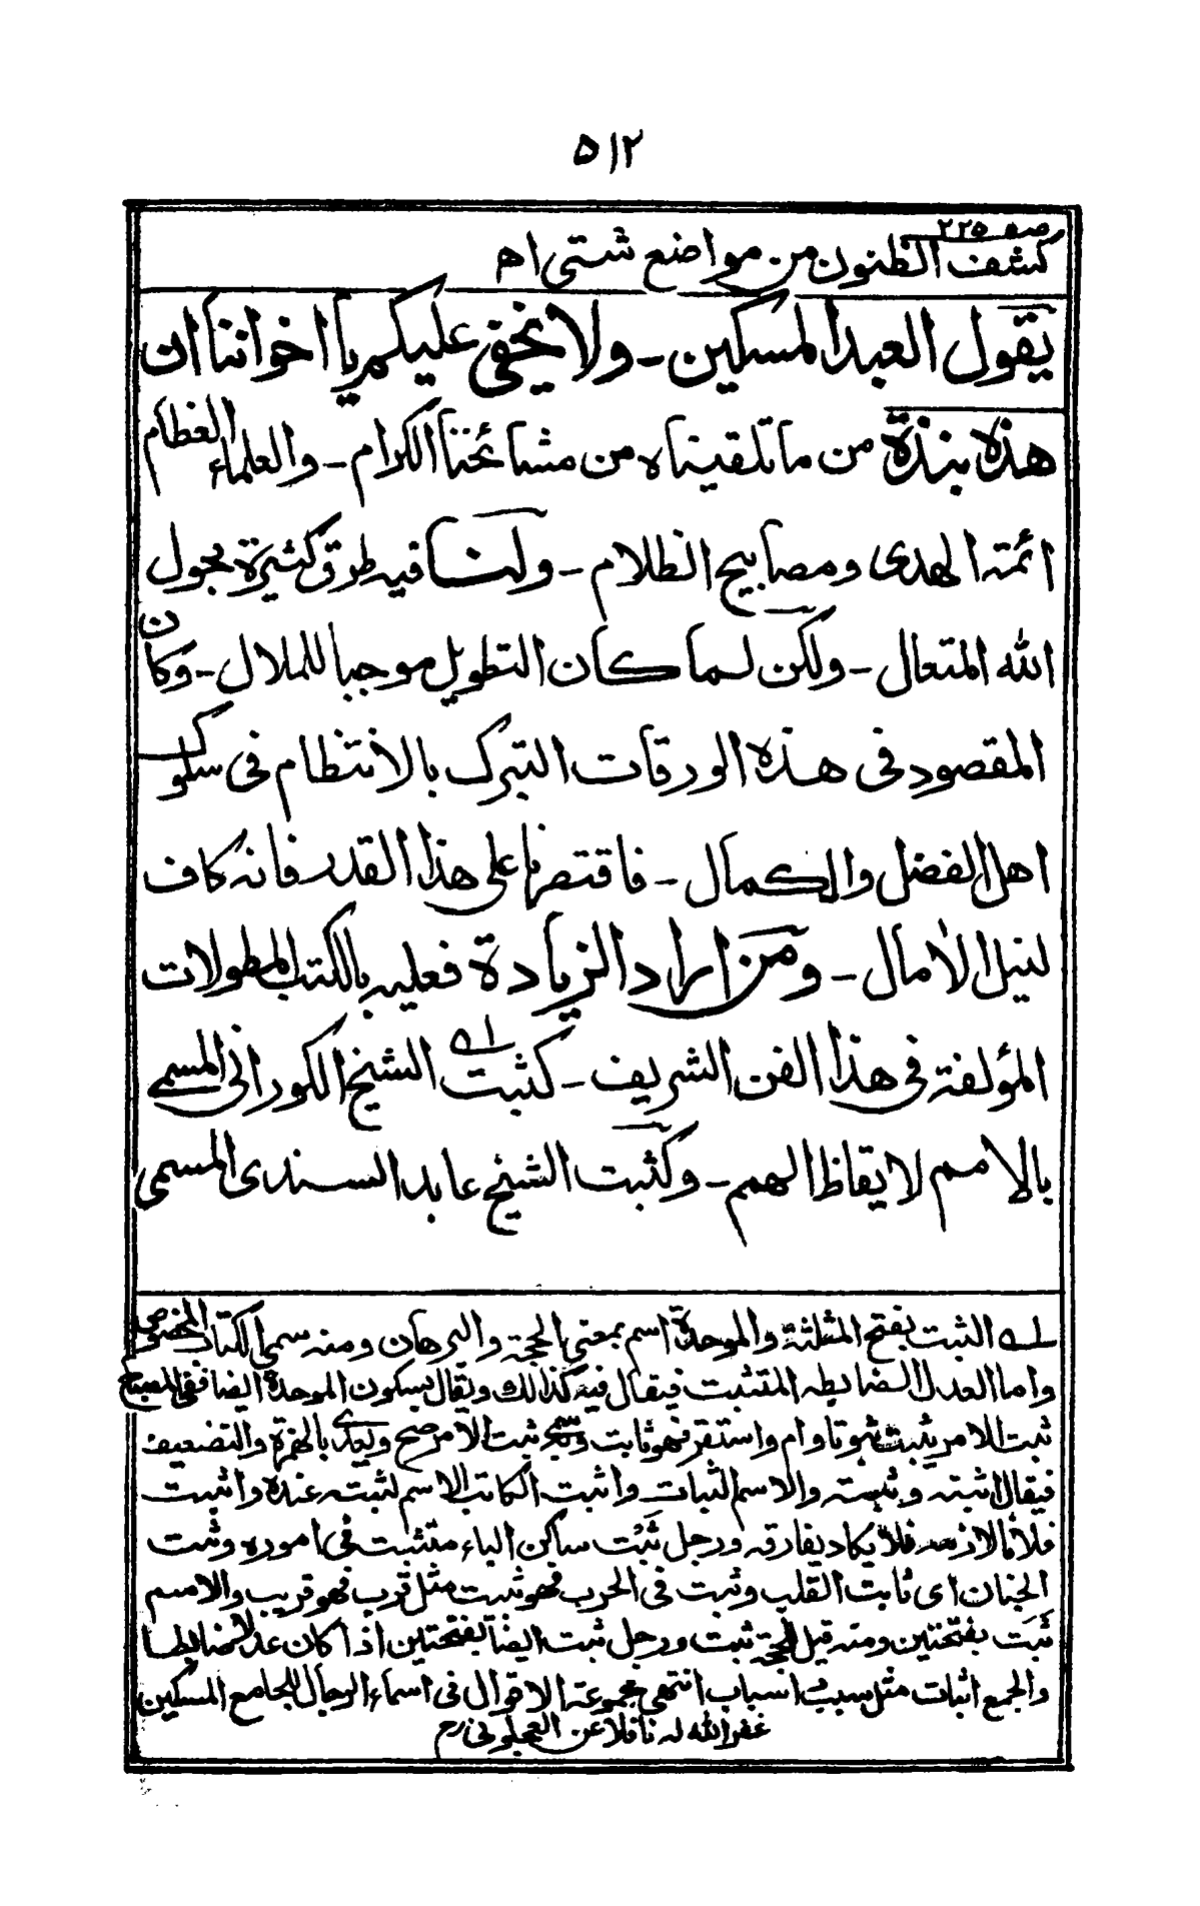 ٥١٢
صـ ٢٢٥
كشف الظنون من مواضع شتى اهـ
يقول العبد المسكين - ولا يخفى عليكم يا اخواننا ان
هذه نبذة من ما تلقيناه من مشائخنا الكرام - والعلماء العظام
ائمة الهدى ومصابيح الظلام - ولنا فيه طرق كثيرة بحول
الله المتعال - ولكن لما كان التطويل موجبا للملال - وكان
المقصود فى هذه الورقات التبرك بالانتظام فى سلوك
اهل الفضل والكمال - فاقتصرنا على هذا القدر فانه كاف
لنيل الآمال - ومن اراد الزيادة فعليه بالكتب المطولات
المؤلفة فى هذا الفن الشريف - كثبت ١ الشيخ الكورانى المسمى
بالامم لايقاظ الهمم - وكثبت الشيخ عابد السندى المسمى
١ الثبت بفتح المثلثة والموحدة اسم بمعنى الحجة والبرهان ومنه سمى الكتاب المخصوص
واما العدل الضابطه المتثبت فيقال فيه كذالك ويقال بسكون الموحدة ايضا ففى المصباح
ثبت الامر يثبت ثبوتا دام واستقر فهو ثابت وثبت الامر صح ويعدى بالهمزة والتضعيف
فيقال اثبته وثبته والاسم الثبات واثبت الكاتب الاسم لثبته عنده واثبت
فلانا لازمه فلا يكاد يفارقه ورجل ثَبْت ساكن الباء متثبت فى اموره وثبت
الجنان اى ثابت القلب وثبت فى الحرب فهو ثبيت مثل قرب فهو قريب والاسم
ثَبَت بفتحتين ومنه قيل للحجة ثبت ورجل ثبت ايضا بفتحتين اذا كان عدلا ضابطا
والجمع اثبات مثل سبب واسباب انتهى مجموعة الاقوال فى اسماء الرجال للجامع المسكين
غفر الله له ناقلا عن العجلونى رح